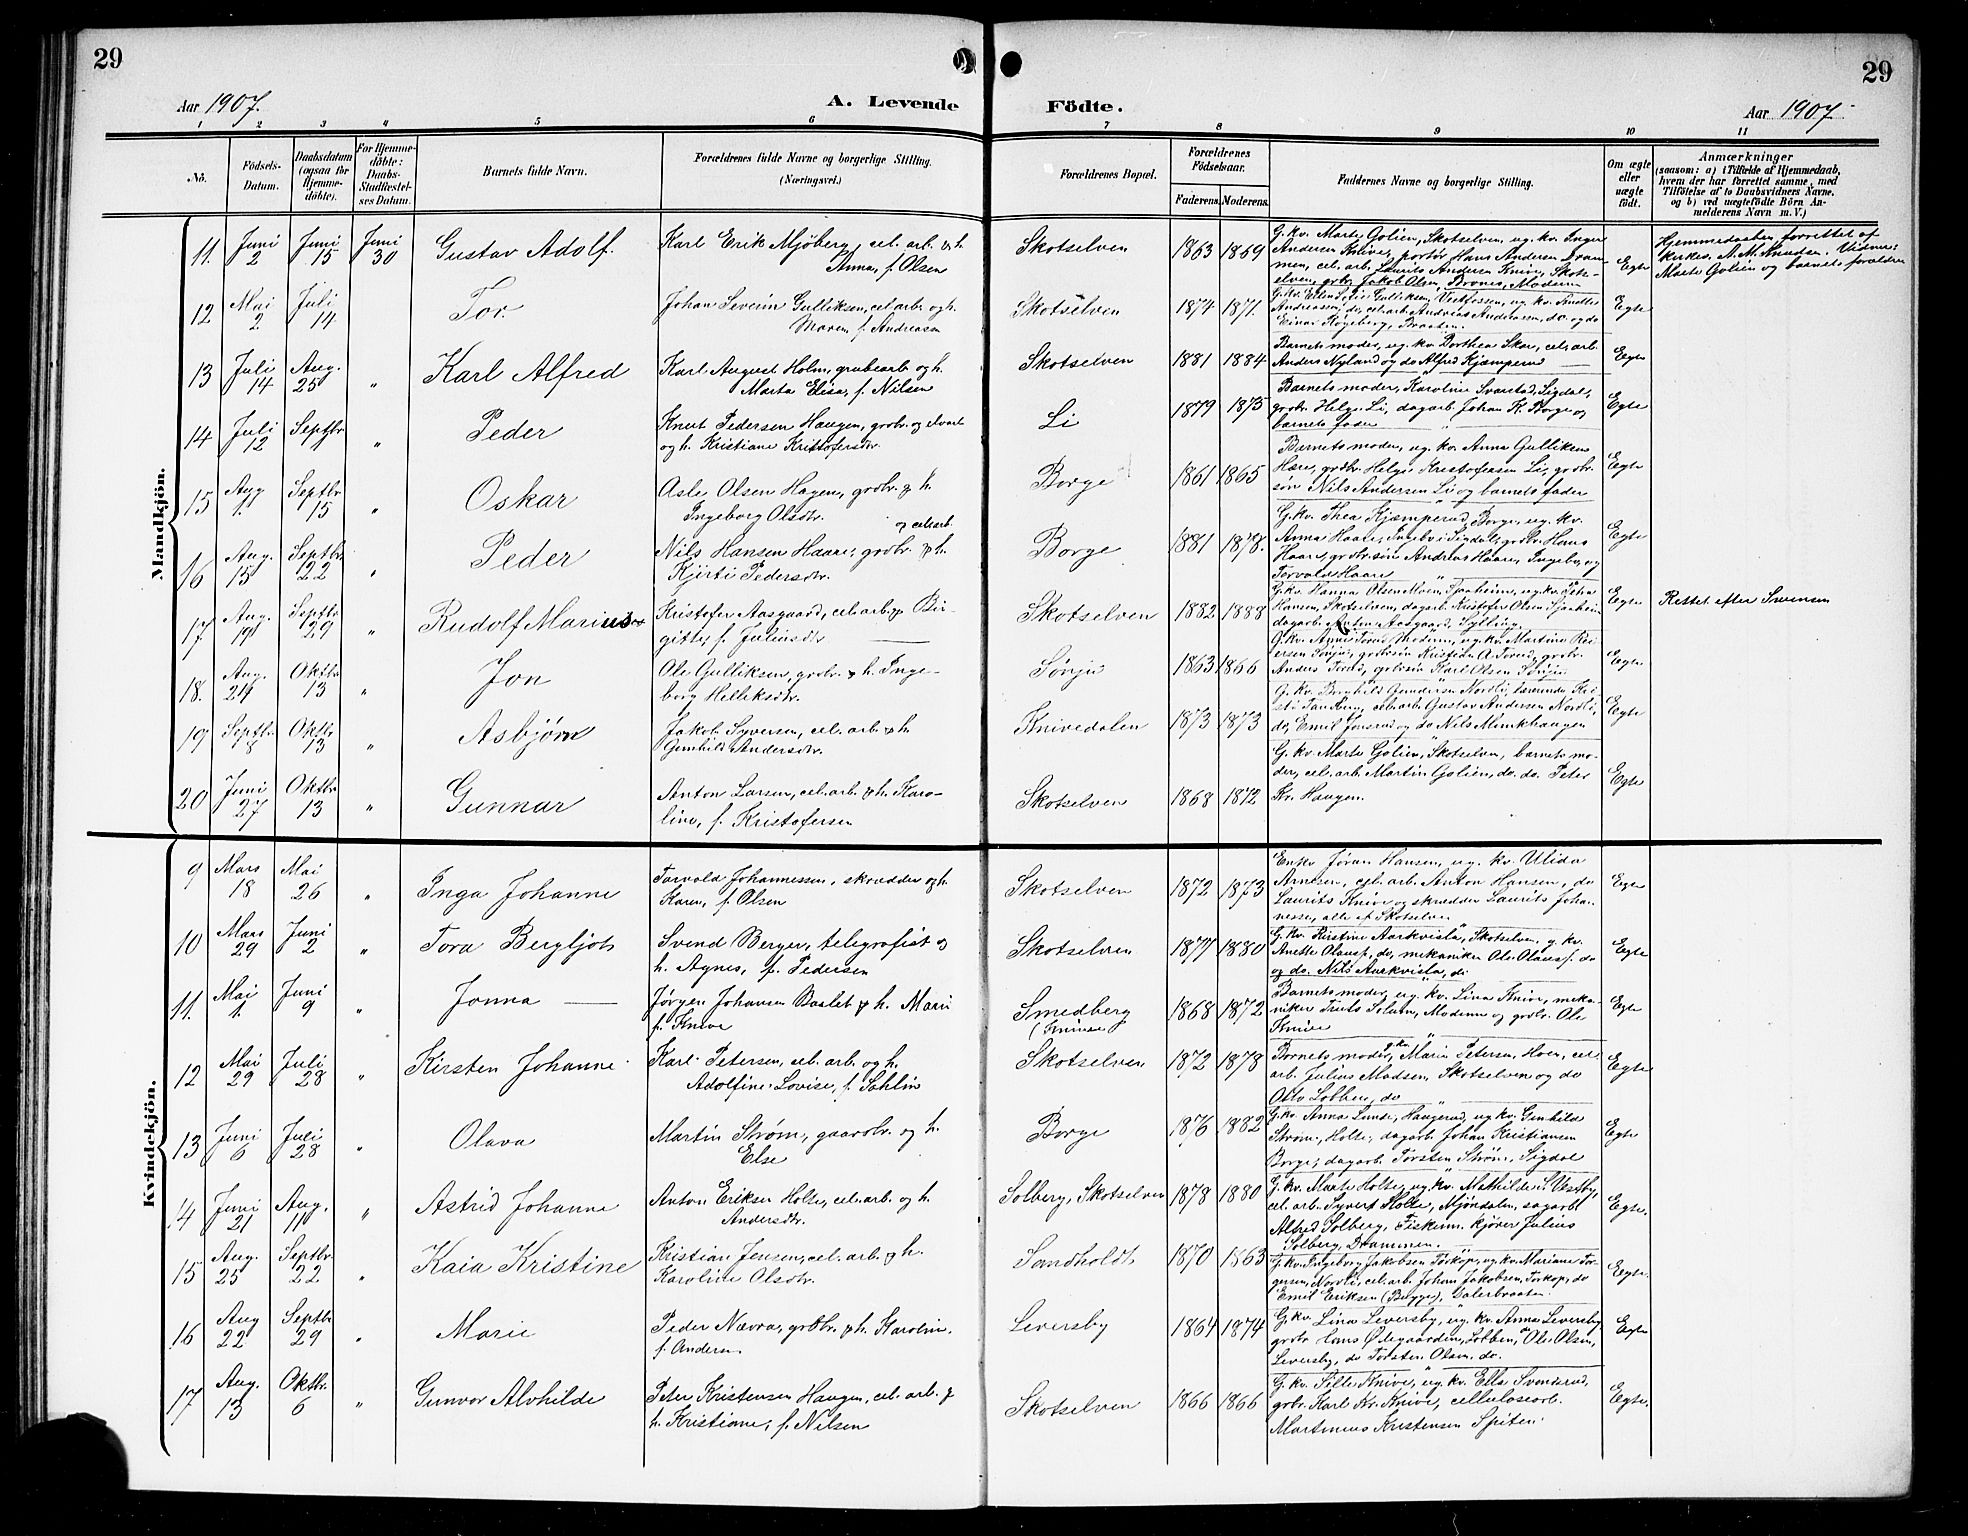 29
29
Aar 1907.
A. Levende
Fødte.
Aar 1907.
1 2 3 4 5 6 7 8 9 10 11
No.
Fødsels-
Datum.
Daabsdatum
(ogsaa for
Hjemme-
døbte).
For Hjemme-
døbte:
Daabs-
Stadfæstel-
ses Datum.
Barnets fulde Navn.
Forældrenes fulde Navne og borgerlige Stilling.
(Næringsvei.)
Forældrenes Bopæl.
Forældrenes
Fødselsaar.
Faderens.
Moderens.
Faddernes Navne og borgerlige Stilling.
Om ægte
eller
uægte
født.
Anmærkninger
(saasom: a) i Tilfælde af Hjemmedaab,
hvem der har forrettet samme, med
Tilføielse af to Daabsvidners Navne.
og b) ved uægtefødte Børn An-
melderens Navn m. V.)
Mandkjön.
11. Juni 2 Juni 15 Juni 30 Gustav Adolf.
Karl Erik Mjöberg, cel. arb. & h.
Anna, f. Olsen
Skotselven 1863 1869
G. kv. Marte Golien, Skotselven, ug. kv. Inger
Andersen Knive, portör Hans Andersen Dram-
men, cel. arb. Laurits Andersen Knive, Skots-
elven, grbr. Jakob Olsen, Modum
Egte
Hjemmedaaben forrettet af
kirkes. A. M. Knudsen. Vidner:
Marte Golien og barnets forældre
12 Mai 2 Juli 14 Tor.
Johan Severin Gulliksen, cel. arb. og h.
Maren, f. Andreasen
Skotselven 1874 1871.
Einar Røgeberg, Braaten.
Egte
13 Juli 14 Aug. 25 " Karl Alfred
Karl August Holm, grubearb. og h.
Marta Elisa, f. Nilsen
Skotselven 1881 1884
Barnets moder, ug. kv. Dorthea Skar, cel. arb.
Anders Nyland og do Alfred Kjæmperud
Egte
14 Juli 12 Septbr " Peder
Knut Pedersen Haugen, grbr. og
og h. Kristiane Kristofersdtr.
Li 1879 1875
Barnets moder, Karoline Svarstad, Sigdal,
grbr. Helge Li, dagarb. Johan K. Borge og
barnets fader
Egte
15 Aug. 1. Septbr 15 " Oskar
Asle Olsen Hagen, grdbr. & h.
Ingeborg Olsdtr.
Borge 1861 1865
Barnets moder, ug. kv. Anna Gulliksen
Hære, grdbr. Helge Kristofersen Li, grdbr.
søn Nils Andersen Li og barnets fader
Egte
16 Aug. 15 Septbr. 22 " Peder
og cel. arb.
Nils Hansen Haare, grdbr. & h.
Kjersti Pedersdtr.
Borge 1881 1878.
G. kv. Thea Kjæmperud, Borge, ug. kv.
Anna Haare, Sigdal, grdbr. Hans
Haare, grdbr. søn Andreas Haare, og
Torvald Haare
Egte
17 Aug. 19 Septbr 29 " Rudolf Marius
Kristofer Aasgaard, cel. arb. & Bir-
gitte, f. Juliusdtr
Skotselven 1882 1888
G. kv. Hanna Olsen Moen, Spaheim, ug. kv.
Hansen, Skotselven, dagarb. Kristofer Olsen
dagarb. Anton Aasgaard, Sylling.
Egte
Rettet efter Svensen
18. Aug. 24 Oktbr 13 " Jon
Ole Gulliksen, grdbr. & h. Inge-
borg Helliksdtr.
Sønju 1863 1866
Egte
19 Septbr 8 Oktbr 13 " Asbjørn
Jakob Syversen, cel. arb. & h.
Gunhild Andersdtr.
Knivedalen 1873 1873
G. kv. Gundersen Nordli,
cel. arb. Gustav Andersen Nordli,
do, Emil og do Nils Munkhaugen
Egte
20 Juni 27 Oktbr 13 " Gunnar
Anton Larsen, cel. arb. & h. Karo-
line, f. Kristofersen
Skotselven 1868 1872
G. kv. Marte Golien, Skotselven, barnets mo-
der, cel. arb. Martin Golien, do. do. Peter
Kr. Haugen.
Egte
Kvindekjön.
9 Mars 18 Mai 26 " Inga Johanne
Torvald Johannessen, skrædder og h.
Karen, f. Olsen
Skotselven 1872 1873
Enke Jøran Hansen, ug. kv. Ulida
Arnesen, cel. arb. Anton Hansen, do
Laurits Knive og skrædder Laurits Johan-
nessen, alle af Skotselven
Egte
10 Mars 29 Juni 2 " Tora Bergljot
Svend Berger, telegrafist og
h. Agnes, f. Pedersen
Skotselven 1877 1880
G. kv. Kirstine Aarkvisla, Skotselven, g. kv.
Anette Olausf., do, mekaniker Ole Olausf. do
og do. Nils Aarkvisla, do
Egte
11. Mai 1. Juni 9 " Jonna
Jørgen Johansen Baslet & h. Marie
f. Knive
Smedberg
(Knive) 1868 1872
Barnets moder, ug. kv. Lina Knive, meka-
niker Truls Solum, Modum og grdbr. Ole
Knive
Egte
12 Mai 29 Juli 28 " Kirsten Johanne
Karl Petersen, cel. arb. og h.
Adolfine Lovise, f. Sahlin
Skotselven 1872 1878
Barnets moder, g. kv. Marie Petersen, Hoen, cel.
arb. Julius Madsen, Skotselven og do
Otto Lobben, do
Egte
13 Juni 6 Juli 28 " Olava
Martin Strøm, gaardbr. og h.
Else
Borge 1876 1882
G. kv. Anna Lunde, Haugerud, ug. kv. Gunhild
Strøm, Holte, dagarb. Johan Kristiansen
Borge, dagarb. Torsten Strøm, Sigdal
Egte
14 Juni 21 Aug. 11 " Astrid Johanne
Anton Eriksen Holte, cel. arb. og h.
Andersdtr.
Solberg, Skotselven 1878 1880
G. kv. Marte Holte, ug. kv. Mathilde S. Vestby,
cel. arb. Syvert Holte, Mjøndalen, sagarb
Alfred Solberg, Fiskum, kjører Julius
Solberg, Drammen.
Egte.
15 Aug. 25 Septbr. 22 " Kaia Kristine
Kristian Jensen, cel. arb. & h.
Karoline Olsdtr.
Sandholdt 1870 1863
G. kv. Ingeborg Jakobsen Torkop, ug. kv. Mariane Tor-
gersen, Nordli, cel. arb. Johan Jakobsen, Torkop, do
Emil Eriksen (Bugge), Dalerbraaten
Egte.
16 Aug 22 Septbr 29 " Marie
Peder Nævra, grdbr. & h. Karoline,
f. Andersen.
Leversby 1864 1874
G. kv. Lina Leversby, ug. kv. Anna Leversby
grdbr. Hans Ødegaarden, Lobben, Ole Olsen,
Leversby, do Torsten Olsen, do.
Egte
17 Aug. 13 Oktbr. 6 " Gunvor Alvhilde
Peter Kristensen Haugen, cel. arb. &
h. Kristiane, f. Nilsen
Skotselven 1866 1866
G. kv. Sille Knive, ug. kv. Ella Svendsrud,
grbr. Karl Kr. Knive, cellulosearb.
Martinius Kristensen Spiten.
Egte.